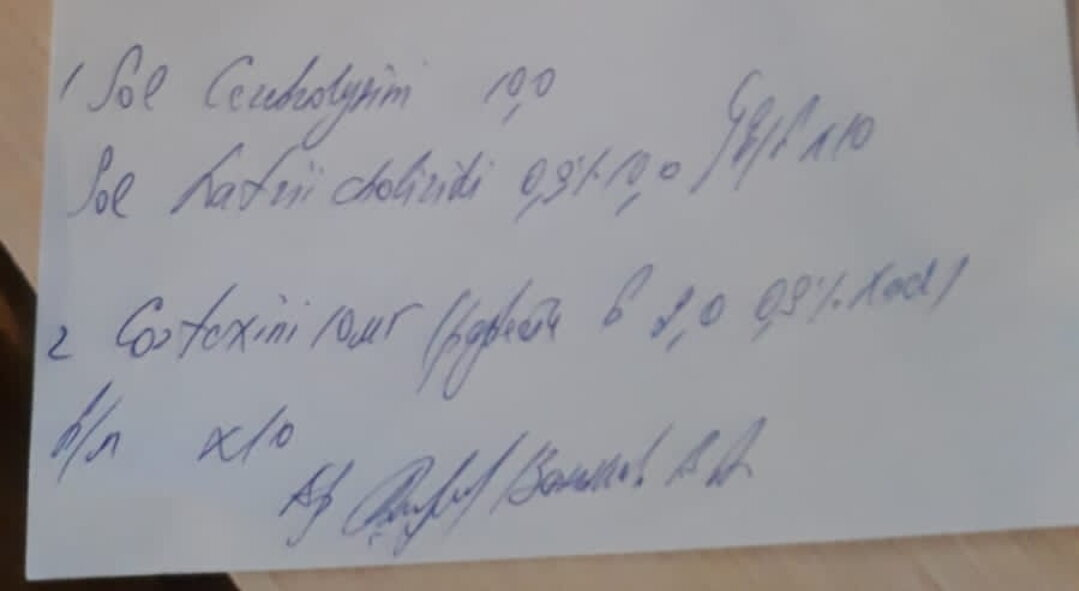 1 Sol Cerebrolysini 10,0
Sol Natrii chloridi 0,9% 10,0 } в/в n10
2 Cortexini 10 мг (развести в 2,0 0,9% NaCl)
в/м x10